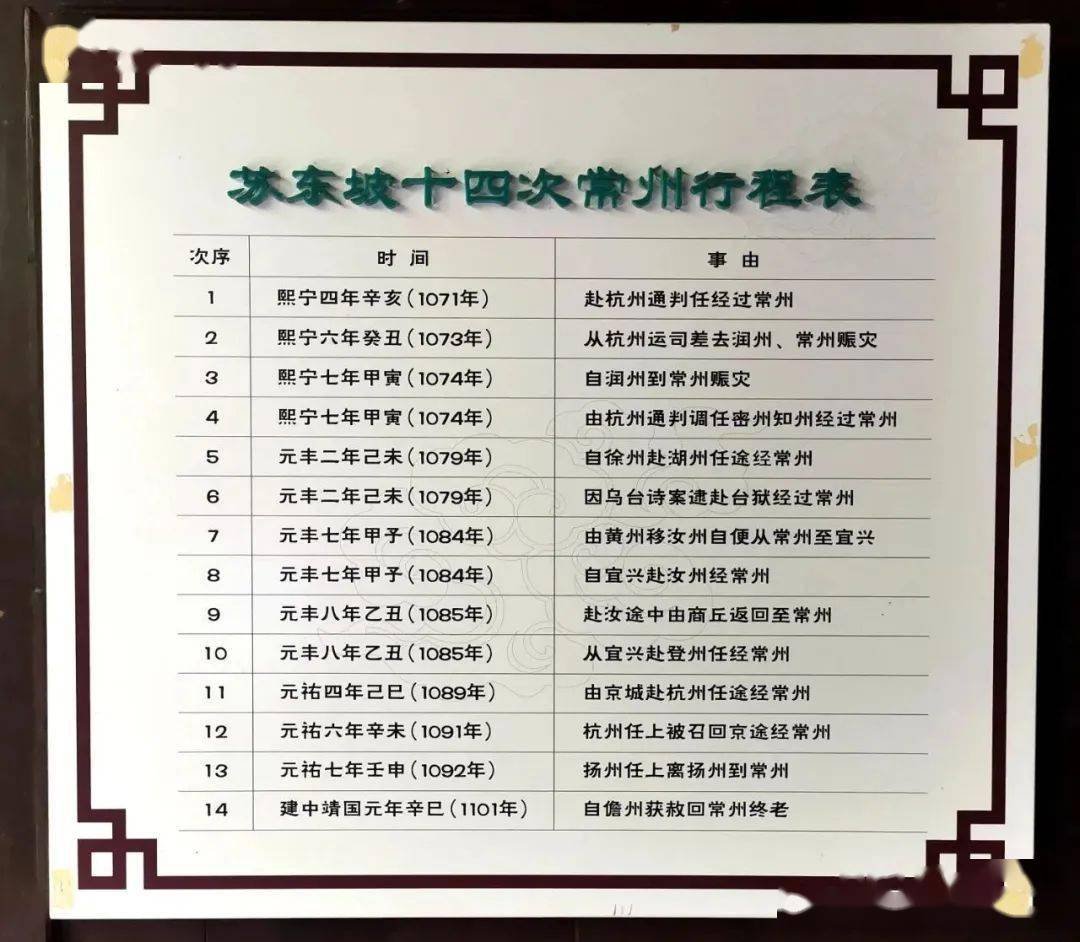 苏东坡十四次常州行程表
次序 时间 事由
1 熙宁四年辛亥(1071年) 赴杭州通判任经过常州
2 熙宁六年癸丑(1073年) 从杭州运司差去润州、常州赈灾
3 熙宁七年甲寅(1074年) 自润州到常州赈灾
4 熙宁七年甲寅(1074年) 由杭州通判调任密州知州经过常州
5 元丰二年己未(1079年) 自徐州赴湖州任途经常州
6 元丰二年己未(1079年) 因乌台诗案逮赴台狱经过常州
7 元丰七年甲子(1084年) 由黄州移汝州自便从常州至宜兴
8 元丰七年甲子(1084年) 自宜兴赴汝州经常州
9 元丰八年乙丑(1085年) 赴汝途中由商丘返回至常州
10 元丰八年乙丑(1085年) 从宜兴赴登州任经常州
11 元祐四年己巳(1089年) 由京城赴杭州任途经常州
12 元祐六年辛未(1091年) 杭州任上被召回京途经常州
13 元祐七年壬申(1092年) 扬州任上离扬州到常州
14 建中靖国元年辛巳(1101年) 自儋州获赦回常州终老